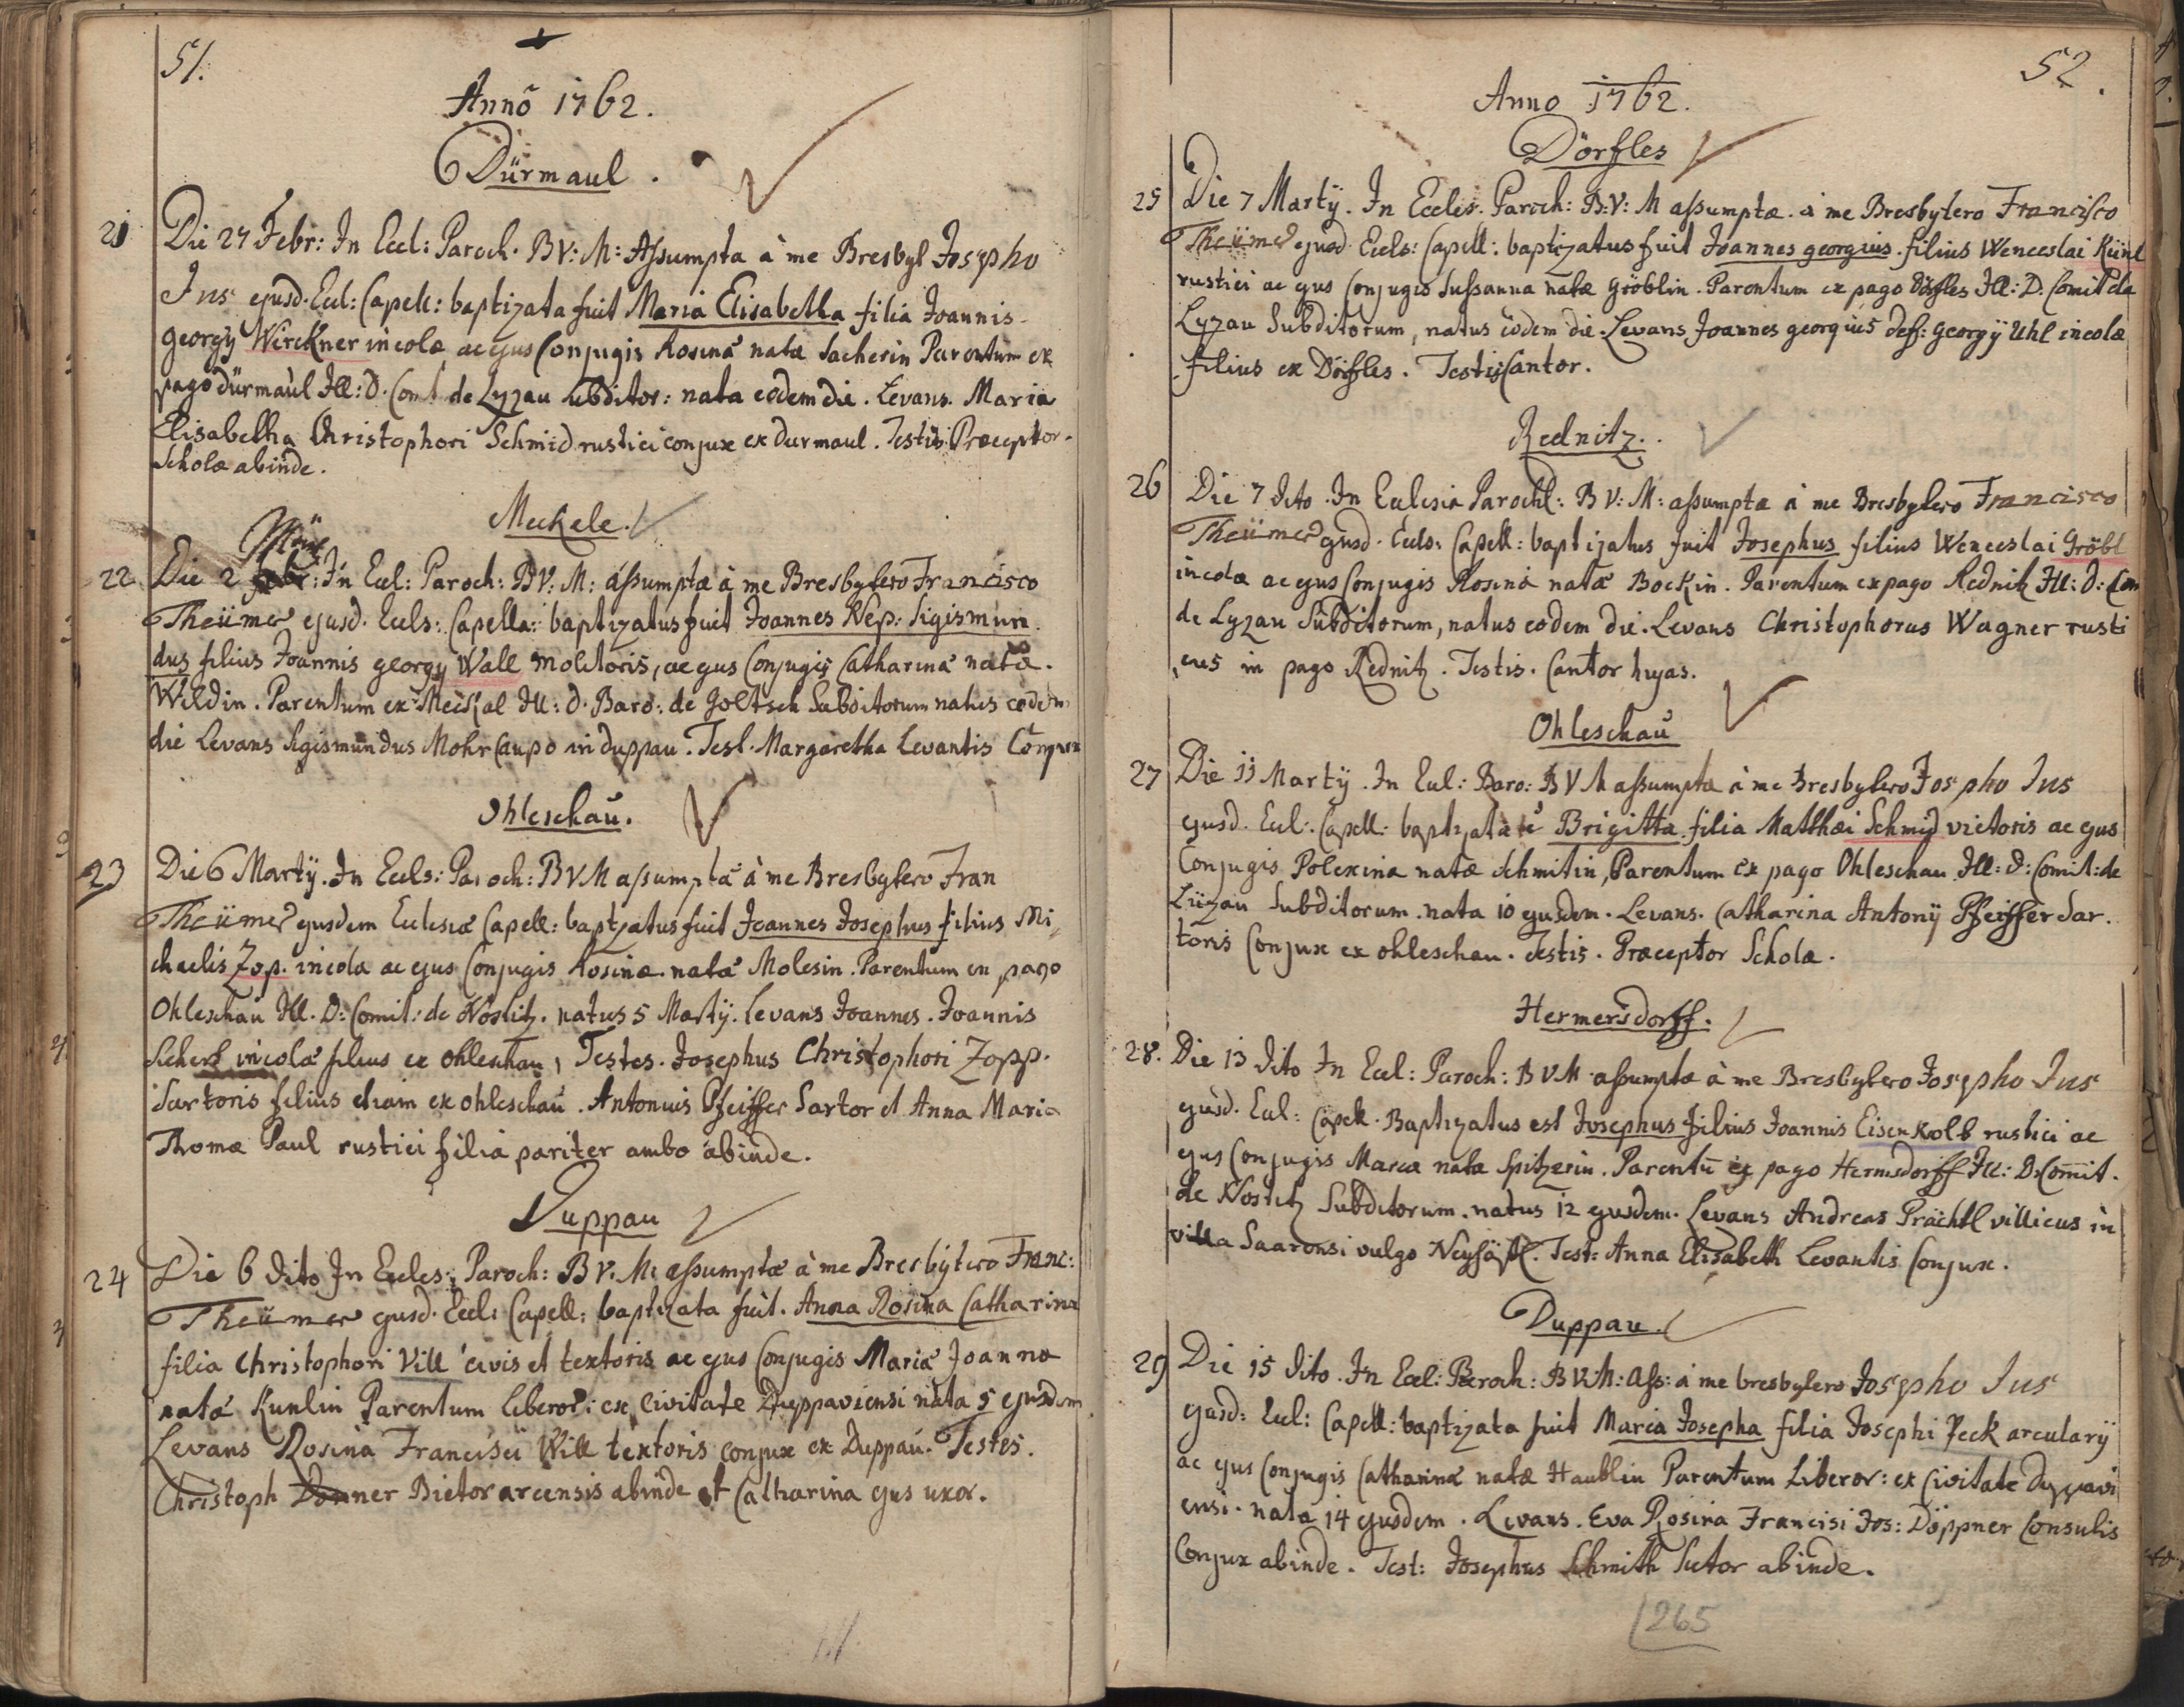 51.
Anno 1762.
Dürmaul.
21 Die 27 Febr: In Eccl: Paroch. BV: M: Assumpta à me Presbyt Josepho
Jus ejusd. Eccl: Capell: baptizata fuit Maria Elisabetha filia Joannis
georgy Wirckner incolæ ac ejus Conjugis Rosina natæ Sacherin Parentum ex
pago dürmaul Ill: D. Comt de Lyzau subditor: nata eodem die. Levans. Maria
Elisabetha Christophori Schmid rustici conjux ex durmaul. Testis Præceptor
Scholæ abinde.
Meckele.
22 Die 2 In Eccl: Paroch: BV: M: assumptæ à me Presbytero Francisco
Theümer ejusd. Eccls: Capella: baptizatus fuit Joannes Nep: Sigismun
dus filius Joannis georgy Wall molitoris, ac ejus Conjugis Catharina nata
Wildin. Parentum ex Meckal Ill: D. Baro: de Goltsch Subditorum natus eodem
die Levans Sigismundus Mohr Caupo in duppau. Test. Margaretha Levantis Conjux
Ohleschau.
23 Die 6 Martÿ. In Eccls: Paroch: BVM assumpta à me Presbytero Fran
Theümer ejusdem Eclesiæ Capell: baptzatus fuit Joannes Josephus filius Mi
chaelis Zop. incola ac ejus Conjugis Rosina nata Molesin. Parentum ex pago
Ohleschau Ill. D: Comit: de Nostitz. natus 5 Martÿ. Levans Joannes. Joannis
incola filius ex ohleschau, Testes. Josephus Christophori Zopp.
Sartoris filius etiam ex ohleschau. Antonius Pfeiffer Sartor et Anna Maria
Thomæ Paul rustici filia pariter ambo abinde.
Duppau
24 Die 6 dito In Eccles: Paroch: BV. M: assumptæ à me Presbytero Franc:
Theümer ejusd. Eccl: Capell: baptizata fuit. Anna Rosina Catharina
filia Christophori Vill civis et textoris ac ejus Conjugis Maria Joanna
nata Kunlin Parentum liberor: ex Civitate Duppaviensi nata 5 ejusdem
Levans Rosina Francisci Will textoris conjux ex Duppau. Testes.
Christoph Donner Bietor arcensis abinde et Catharina ejus uxor.
52.
Anno 1762.
Dörfles
25 Die 7 Martÿ. In Eccles: Paroch: B: V: M assumptæ. à me Presbytero Francisco
Theümer ejusd. Eccls: Capell: baptizatus fuit Joannes georgius. filius Wenceslai Künl
rustici ac ejus Conjugis Sussanna natæ Gröblin. Parentum ex pago Dörfles Ill: D. Comit de
Lyzau Subditorum, natus eodem die. Levans Joannes georgius def: georgÿ Uhl incolæ
filius ex Dörfles. Testis Cantor.
Rednitz.
26 Die 7 dito. In Eclesia Parochl: BV: M: assumptæ à me Presbytero Francisco
Theümer ejusd. Eccls: Capell: baptizatus fuit Josephus filius Wenceslai Gröbl
incolæ ac ejus Conjugis Rosina natæ Bockin. Parentum ex pago Rednitz Ill: D: Com
de Lyzau Subditorum, natus eodem die. Levans Christophorus Wagner rusti
cus in pago Rednitz. Testis. Cantor hujas.
Ohleschau
27 Die 11 Martÿ. In Eccl: Paro: BVM assumpta à me Presbytero Josepho Jus
ejusd. Eccl: Capell: baptizata Brigitta filia Matthæi Schmid vietoris ac ejus
Conjugis Polexina natæ Schmitin, Parentum ex pago Ohleschau Ill: D: Comit: de
Lüzau Subditorum. nata 10 ejusdem. Levans. Catharina Antonÿ Pfeiffer Sar.
toris Conjux ex ohleschau. Testis. Præceptor Schola.
Hermersdorff.
28. Die 13 dito In Eccl: Paroch: BVM assumptæ à me Presbytero Josepho Jus
ejusd. Eccl: Capell. Baptizatus est Josephus filius Joannis Eisenkolb rustici ac
ejus Conjugis Maria nata Spitzerin. Parentū ex pago Hermsdorff Ill: D: Comit.
de Nostitz Subditorum. natus 12 ejusdem. Levans Andreas Prächtl villicus in
villa Saarensi vulgo. Test: Anna Elisabeth Levantis Conjux.
Duppau.
29 Die 15 dito. In Eccl: Paroch: BV: M: Ass: à me presbytero Josepho Jus
ejusd: Eccl: Capell: baptizata fuit Maria Josepha filia Josephi Peck arcularÿ
ac ejus Conjugis Catharina natæ Haublin Parentum Liberor: ex Civitate Duppavi
ensi. nata 14 ejusdem. Levans. Eva Rosina Francisi Jos: Döppner Consulis
Conjux abinde. Test: Josephus Schmith Sutor abinde.
265